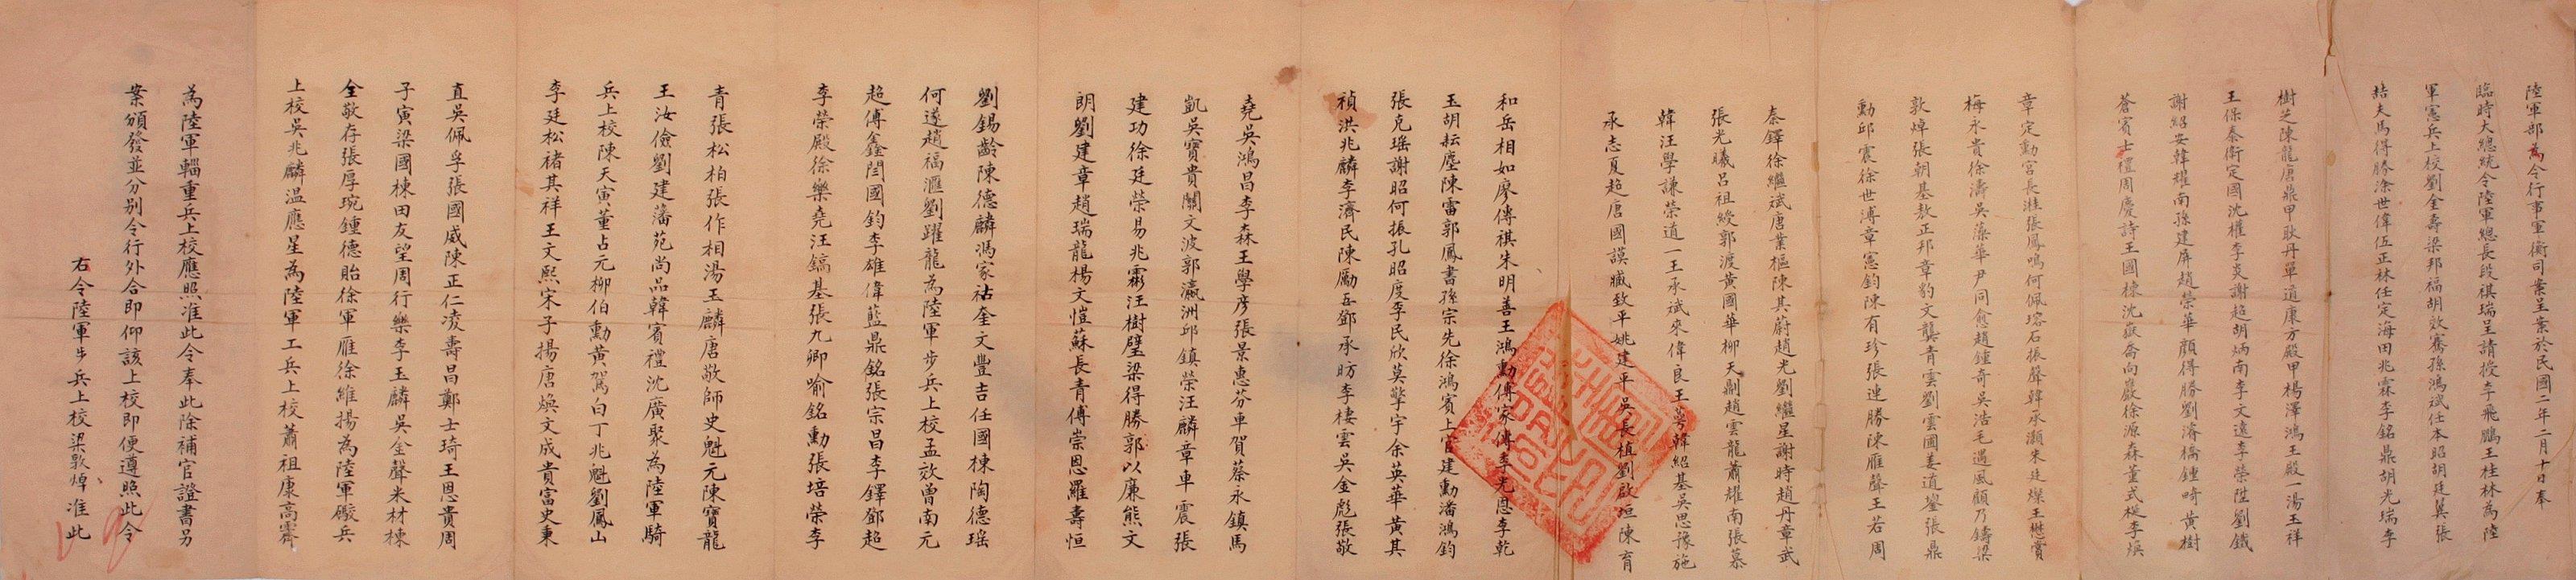 陸軍部為令行事軍衡司案呈案於民國二年二月十日奉
臨時大總統令陸軍總長段祺瑞呈請授李飛鵬王桂林為陸
軍憲兵上校劉金壽梁邦福胡效騫孫鴻斌任本昭胡廷翼張
喆夫馬得勝涂世偉伍正林任定海田兆霖李銘鼎胡光瑞李
樹芝陳龍唐鼎甲耿丹單道康方殿甲楊澤鴻王殿一湯玉祥
王保泰衛定國沈權李炎謝超胡炳南李文遠李榮陞劉鐵
謝紹安韓耀南孫建屏趙榮華顏得勝劉濬橋鍾畸黃樹
蒼賓士禮周慶詩王國棟沈嶽喬向巖徐源森董式梃李煥
章定勳宮長溎張鳳鳴何佩瑢石振聲韓承灝朱廷燦王懋賞
梅永貴徐濤吳藻華尹同愈趙鍾奇吳浩毛遇風顧乃鑄梁
敦焯張朝基敖正邦章豹文龔青雲劉雲國姜道鋆張鼎
勳邱震徐世溥章憲鈞陳有珍張連勝陳雁聲王若周
秦鐸徐繼斌唐業樞陳其蔚趙光劉繼星謝時趙丹章武
張光曦呂祖綬郭渡黃國華柳天剛趙雲龍蕭耀南張慕
韓汪學謙榮道一王承斌來偉良王萼韓紹基吳思豫施
承志夏超唐國謨臧致平姚建平吳長植劉啟垣陳育
和岳相如廖傳祺朱明善王鴻勳傅家傳李光恩李乾
玉胡耘塵陳雷郭鳳書孫宗先徐鴻賓上官建勳潘鴻鈞
張克瑤謝昭何振孔昭度李民欣莫擎宇余英華黃其
禎洪兆麟李濟民陳勵吾鄧承昉李棲雲吳金彪張敬
堯吳鴻昌李森王學彥張景惠芬車賀蔡永鎮馬
凱吳寶貴闞文波郭瀛洲邱鎮榮汪麟章車震張
建功徐廷榮易兆霖汪樹璧梁得勝郭以廉熊文
朗劉建章趙瑞龍楊文愷蘇長青傅崇恩羅壽恒
劉錫齡陳德麟馮家祜奎文豐吉任國棟陶德瑤
何遂趙福滙劉躍龍為陸軍步兵上校孟效曾南元
超傅鑫閆國鈞李雄偉藍鼎銘張宗昌李鐸鄧超
李榮殿徐樂堯汪鎬基張九卿喻銘勳張培榮李
青張松柏張作相湯玉麟唐敬師史魁元陳寶龍
王汝儉劉建藩苑尚品韓賓禮沈廣聚為陸軍騎
兵上校陳天寅董占元柳伯勳黃駕白丁兆魁劉鳳山
李廷松褚其祥王文熙宋子揚唐煥文成貴富史秉
直吳佩孚張國威陳正仁凌壽昌鄭士琦王恩貴周
子寅梁國棟田友望周行樂李玉麟吳金聲米材棟
全敬存張厚琬鍾德貽徐軍雁徐維揚為陸軍礮兵
上校吳兆麟溫應星為陸軍工兵上校蕭祖康高霽
為陸軍輜重兵上校應照准此令奉此除補官證書另
案頒發並分别令行外合即仰該上校即便遵照此令
右令陸軍步兵上校梁敦焯准此